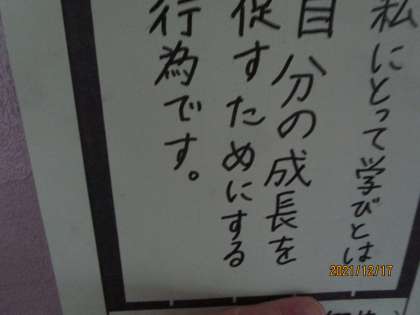 私にとって学びとは
自分の成長を
促すためにする
行為です。
2021/12/17